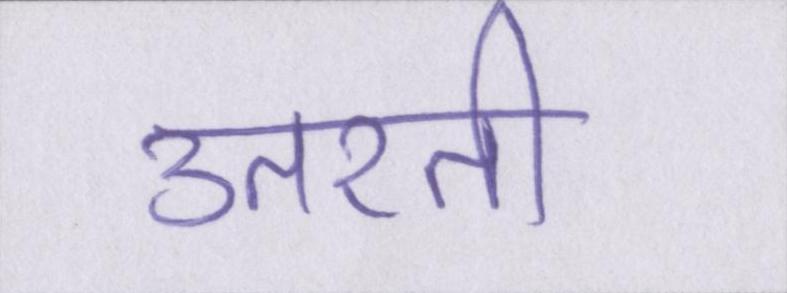 उतरती